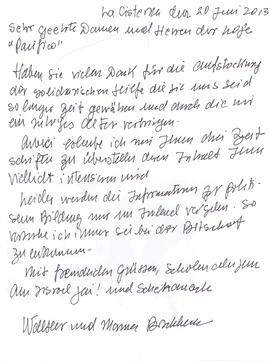 La Cisterna den 20 Juni 2013
Sehr geehrte Damen und Herren der Loge
"Pacifico"
Haben Sie vielen Dank für die Aufstockung
der solidarischen Hilfe die Sie uns seid
so langer Zeit gewähren und durch die wir
ein ruhiges Alter verbringen.
Anbei erlaube ich mir Ihnen drei Zeit
schriften zu überstellen deren Inhalt Ihnen
vielleicht interessieren wird
Leider werden die Informationen zur Politi-
schen Bildung nur im Inland vergeben. So
versuche ich immer sie bei der Botschaft
zu bekommen.
Mit freundlichen Grüssen, Scholem aleichem
Am Jisroel Jai! und
Walter und Marna